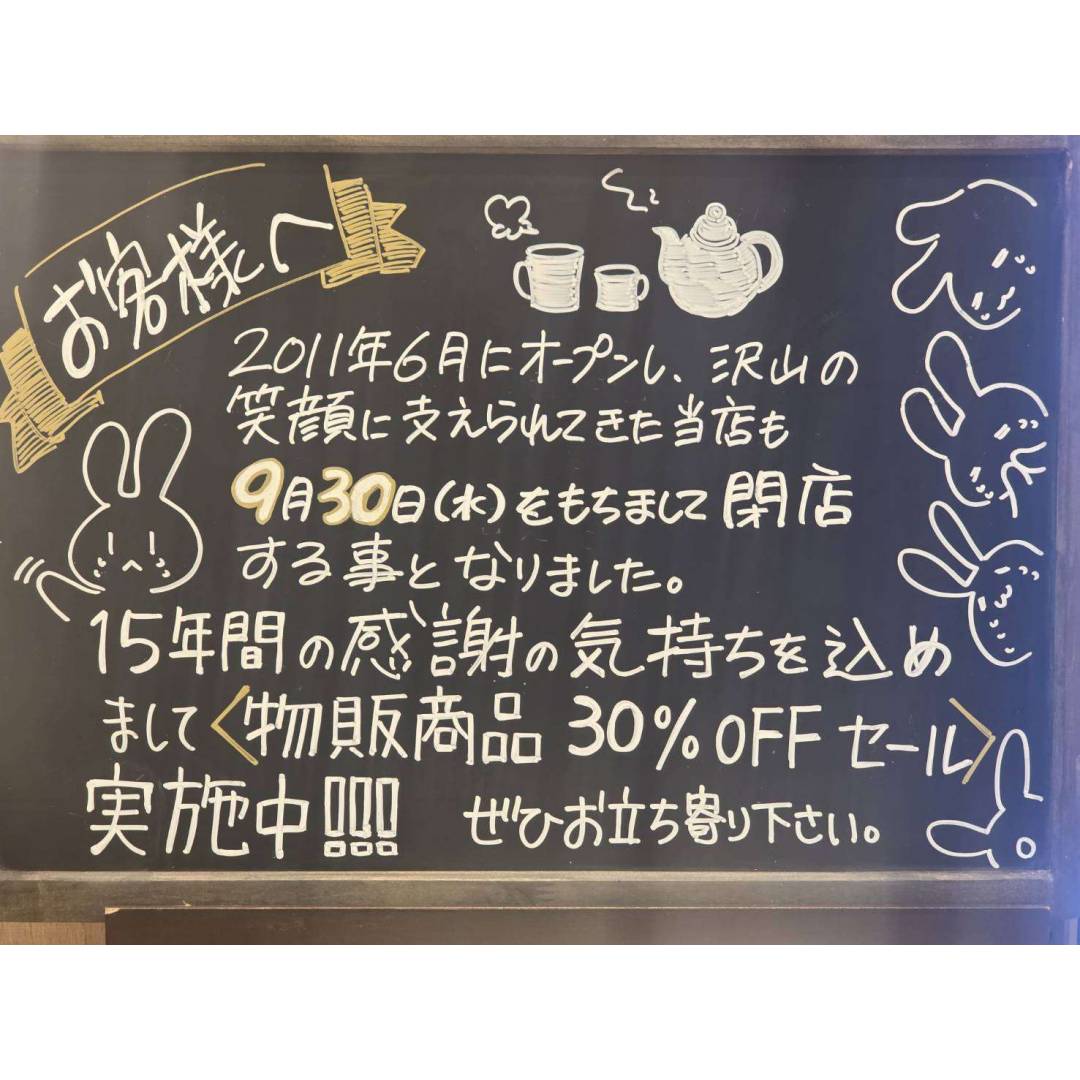 お客様へ
2011年6月にオープンし、沢山の
笑顔に支えられてきた当店も
9月30日(水)をもちまして閉店
する事となりました。
15年間の感謝の気持ちを込め
まして〈物販商品 30%OFFセール〉
実施中!!!! ぜひお立ち寄り下さい。